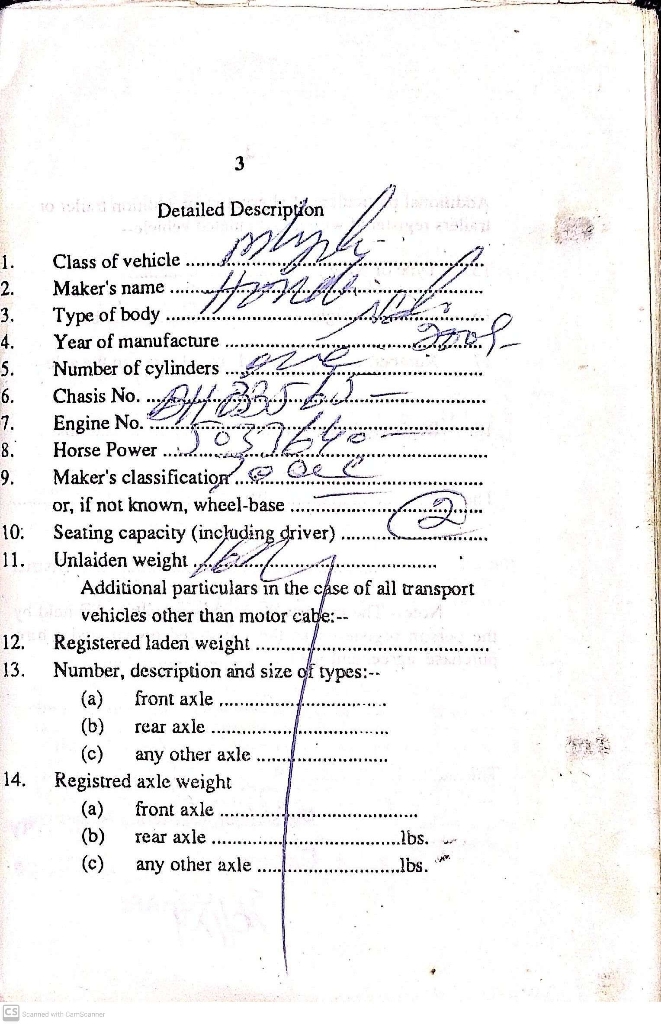 3
Detailed Description
1. Class of vehicle ........ M/Cycle
2. Maker's name ........ Honda
3. Type of body ........
4. Year of manufacture ........ 2005
5. Number of cylinders ........ one
6. Chasis No. ........
7. Engine No. ........ 5037640
8. Horse Power ........
9. Maker's classification ........
or, if not known, wheel-base ........
10: Seating capacity (including driver) ........ 2
11. Unlaiden weight ........
Additional particulars in the case of all transport
vehicles other than motor cabe:--
12. Registered laden weight ........
13. Number, description and size of types:--
(a) front axle ........
(b) rear axle ........
(c) any other axle ........
14. Registred axle weight
(a) front axle ........
(b) rear axle ........lbs.
(c) any other axle ........lbs.
CS Scanned with CamScanner